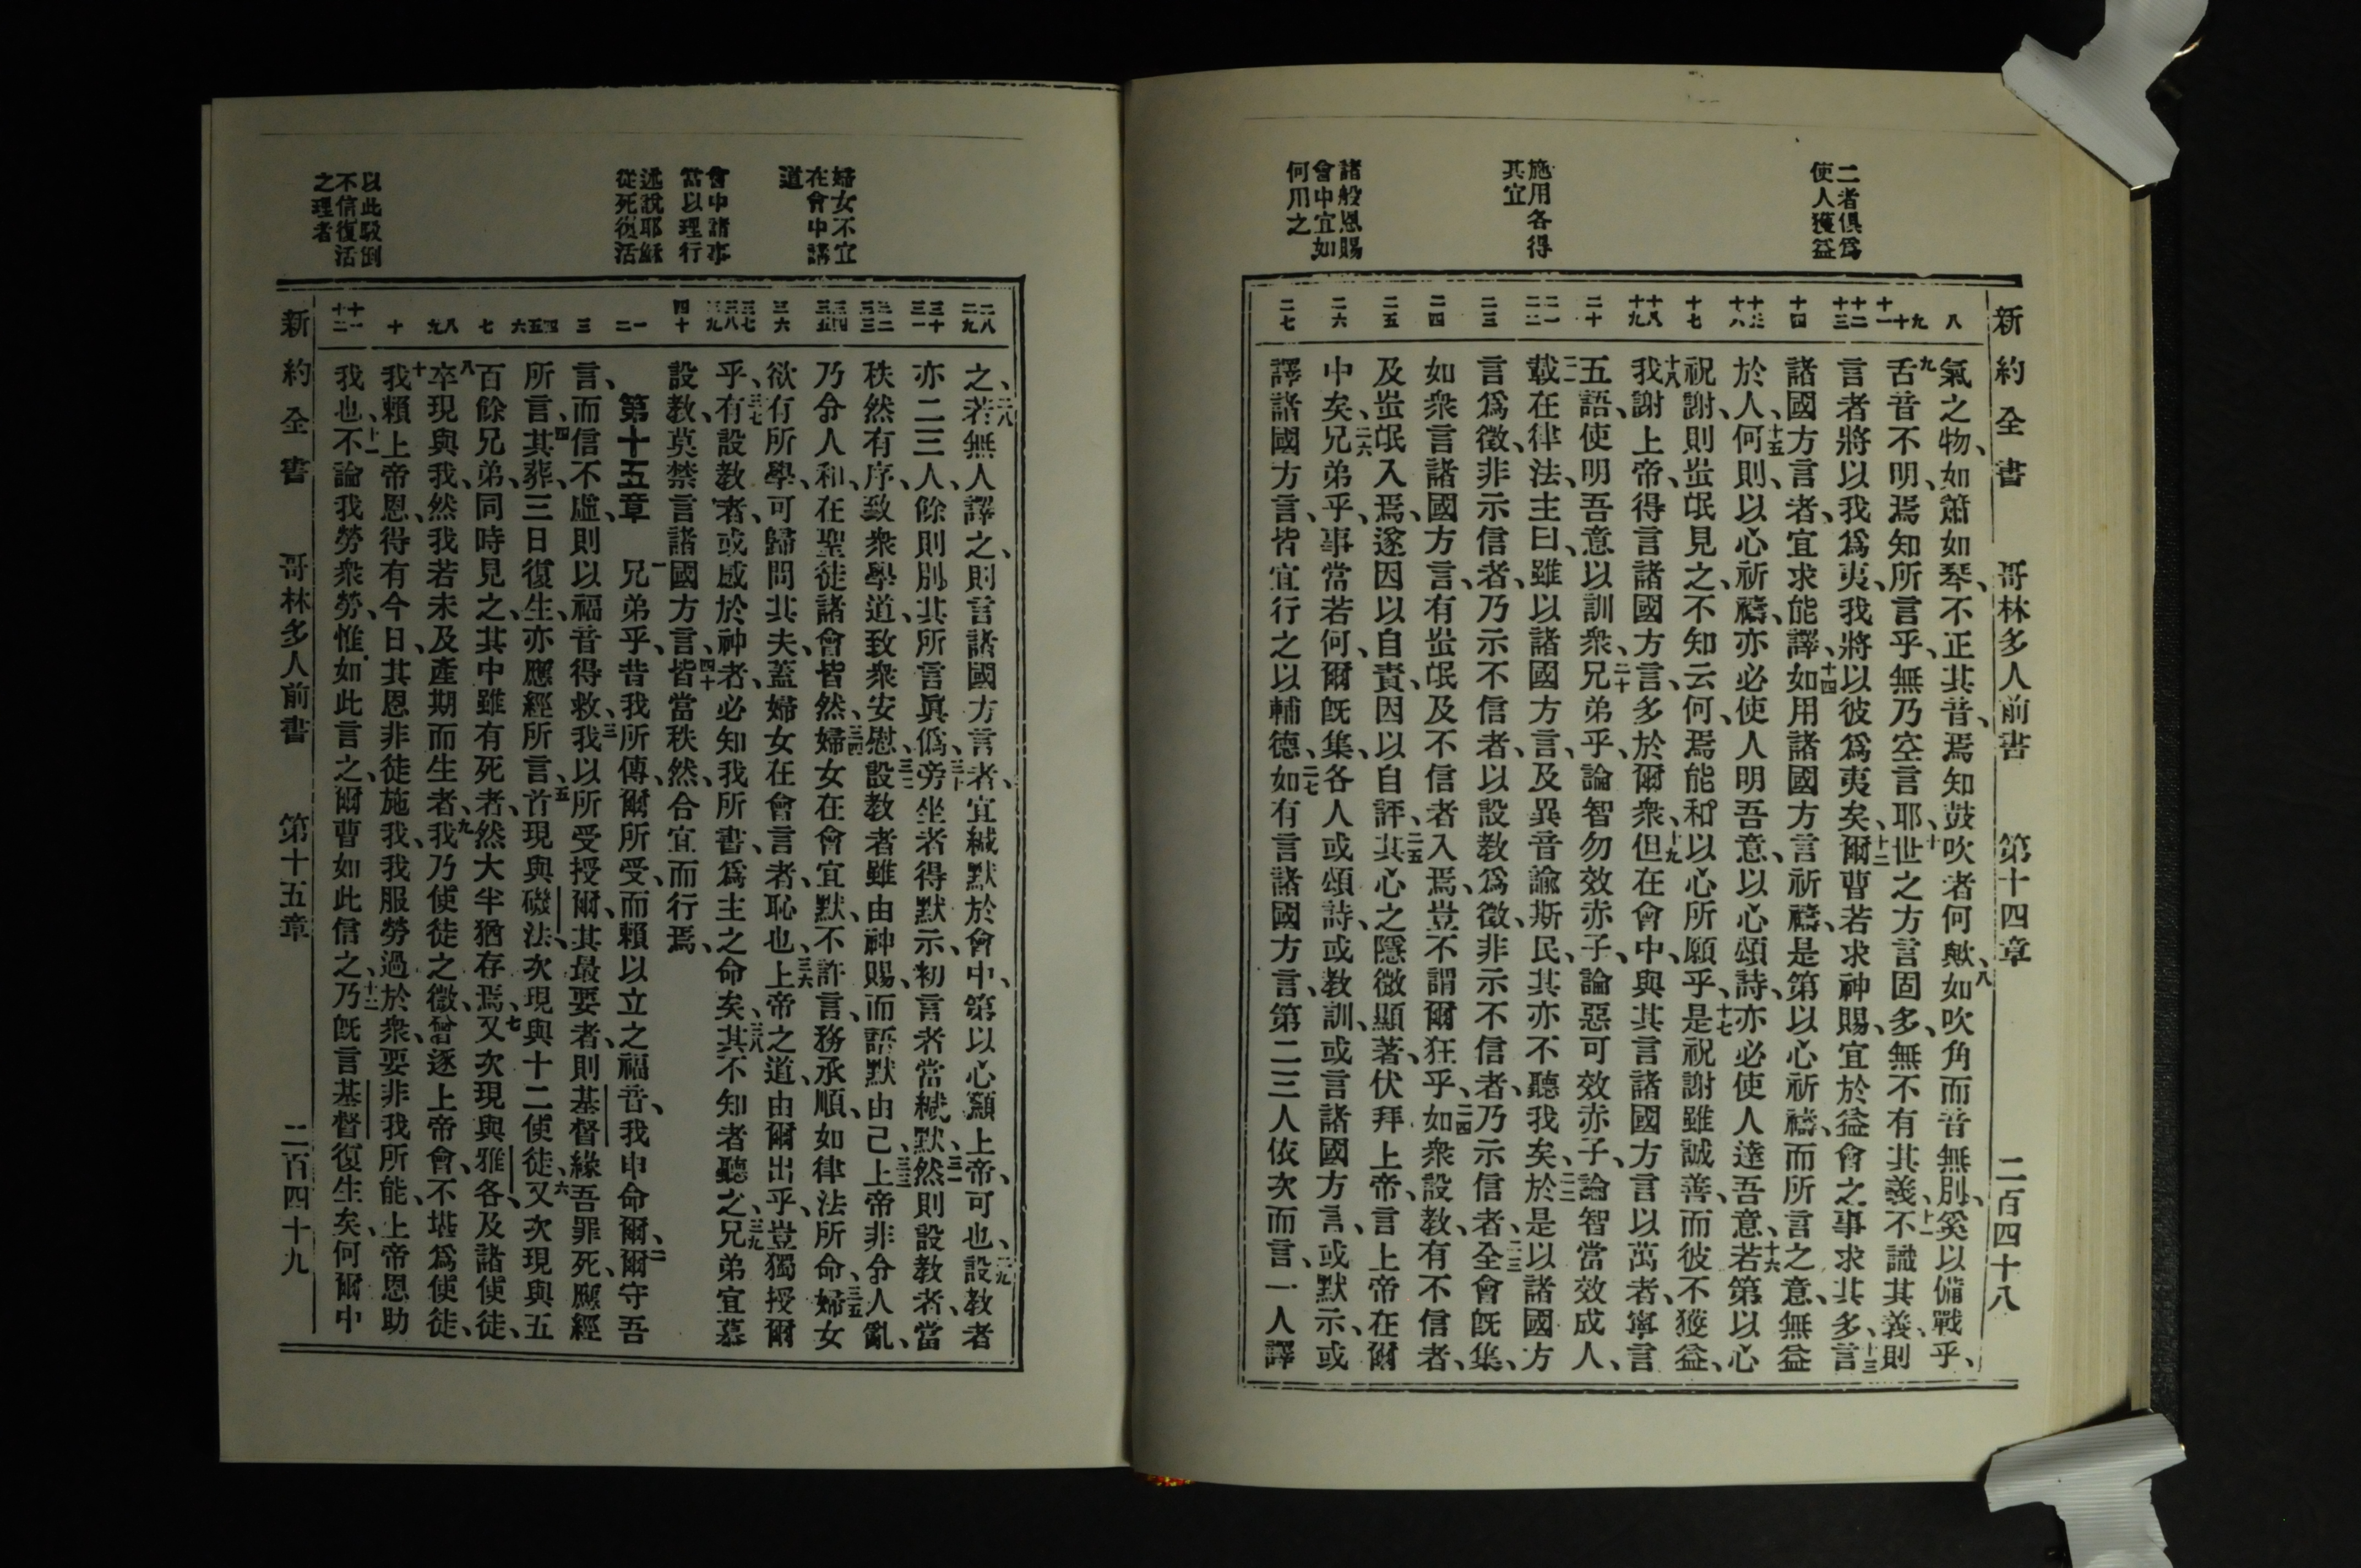 二者俱爲
使人獲益
施用各得
其宜
諸般恩賜
會中宜如
何用之
新約全書 哥林多人前書 第十四章 二百四十八
八
氣之物、如簫如琴、不正其音、焉知鼓吹者何歟、八如吹角而音無別、奚以備戰乎、
九 十 十一
九舌音不明、焉知所言乎、無乃空言耶、十世之方言固多、無不有其義、十一不識其義、則
十二 十三
言者將以我爲夷、我將以彼爲夷矣、十二爾曹若求神賜、宜於益會之事求其多、十三言
十四
諸國方言者、宜求能譯、十四如用諸國方言祈禱、是第以心祈禱、而所言之意、無益
十五 十六
於人、十五何則、以心祈禱、亦必使人明吾意、以心頌詩、亦必使人達吾意、十六若第以心
十七
祝謝、則蚩氓見之、不知云何、焉能和以心所願乎、十七是祝謝雖誠善、而彼不獲益、
十八 十九
十八我謝上帝、得言諸國方言、多於爾衆、十九但在會中、與其言諸國方言以萬者、寧言
二十
五語、使明吾意以訓衆、二十兄弟乎、論智勿效赤子、論惡可效赤子、論智當效成人、
二一 二二
二一載在律法、主曰、雖以諸國方言、及異音諭斯民、其亦不聽我矣、二二於是以諸國方
二三
言爲徵、非示信者、乃示不信者、以設教爲徵、非示不信者、乃示信者、二三全會旣集、
二四
如衆言諸國方言、有蚩氓及不信者入焉、豈不謂爾狂乎、二四如衆設教、有不信者、
二五
及蚩氓入焉、遂因以自責、因以自評、二五其心之隱微顯著、伏拜上帝、言上帝在爾
二六
中矣、二六兄弟乎、事當若何、爾旣集、各人或頌詩、或教訓、或言諸國方言、或默示、或
二七
譯諸國方言、皆宜行之以輔德、二七如有言諸國方言、第二三人依次而言、一人譯
婦女不宜
在會中講
道
會中諸事
當以理行
述說耶穌
從死復活
以此駁倒
不信復活
之理者
二八 二九
之、二八若無人譯之、則言諸國方言者、宜緘默於會中、第以心籲上帝可也、二九設教者
三十 三一
亦二三人、餘則別其所言眞僞、三十旁坐者得默示、初言者當緘默、三一然則設教者、當
三二 三三
秩然有序、致衆學道、致衆安慰、三二設教者雖由神賜、而語默由己、三三上帝非令人亂、
三四 三五
乃令人和、在聖徒諸會皆然、三四婦女在會宜默、不許言、務承順、如律法所命、三五婦女
三六
欲有所學、可歸問其夫、蓋婦女在會言者、恥也、三六上帝之道、由爾出乎、豈獨授爾
三七 三八 三九
乎、三七有設教者、或感於神者、必知我所書、爲主之命矣、三八其不知者聽之、三九兄弟宜慕
四十
設教、莫禁言諸國方言、四十皆當秩然、合宜而行焉、
一 二
第十五章 一兄弟乎、昔我所傳、爾所受、而賴以立之福音、我申命爾、二爾守吾
三
言、而信不虛、則以福音得救、三我以所受授爾、其最要者、則基督緣吾罪死、應經
四 五 六
所言、四其葬、三日復生、亦應經所言、五首現與磯法、次現與十二使徒、六又次現與五
七
百餘兄弟、同時見之、其中雖有死者、然大半猶存焉、七又次現與雅各、及諸使徒、
八 九
八卒現與我、然我若未及產期而生者、九我乃使徒之微、曾逐上帝會、不堪爲使徒、
十
十我賴上帝恩、得有今日、其恩非徒施我、我服勞過於衆、要非我所能、上帝恩助
十一 十二
我也、十一不論我勞衆勞、惟如此言之、爾曹如此信之、十二乃旣言基督復生矣、何爾中
新約全書 哥林多人前書 第十五章 二百四十九